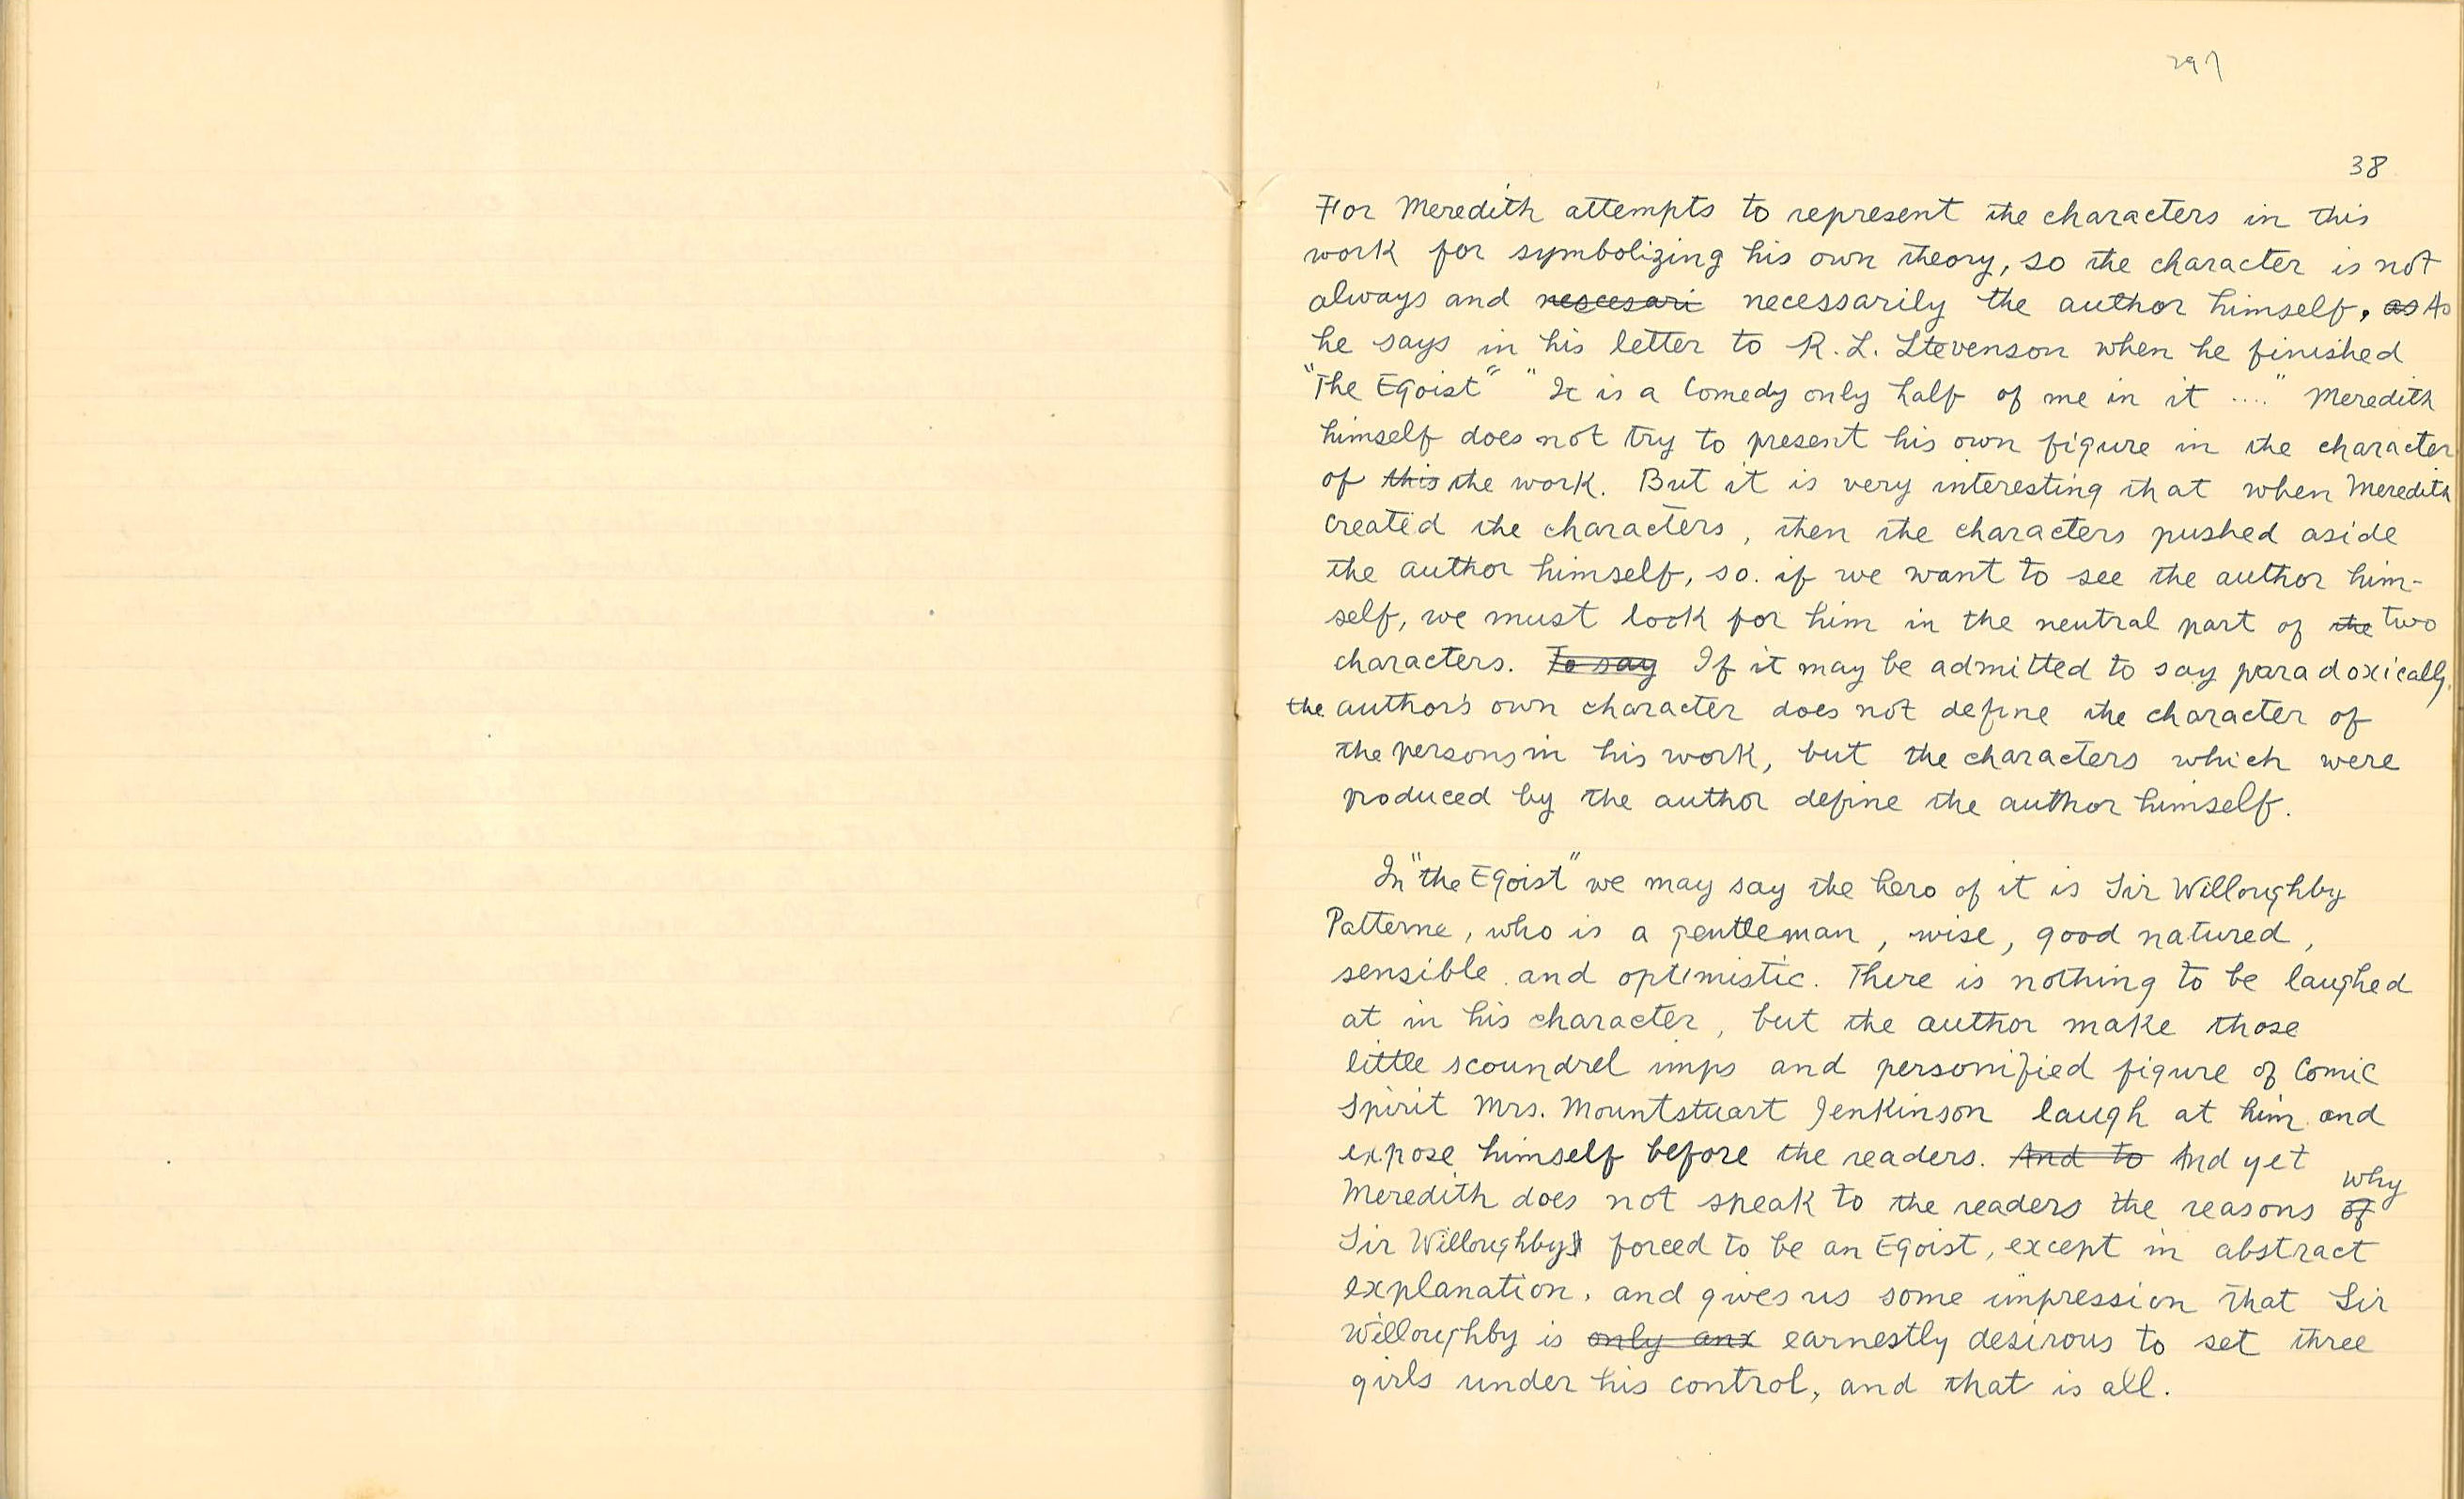 297
38
For Meredith attempts to represent the characters in this
work for symbolizing his own theory, so the character is not
always and nescesari necessarily the author himself, as As
he says in his letter to R. L. Stevenson when he finished
"The Egoist" "It is a Comedy only half of me in it ...." Meredith
himself does not try to present his own figure in the character
of this the work. But it is very interesting that when Meredith
created the characters, then the characters pushed aside
the author himself, so. if we want to see the author him-
self, we must look for him in the neutral part of the two
characters. To say If it may be admitted to say paradoxically,
the author's own character does not define the character of
the persons in his work, but the characters which were
produced by the author define the author himself.
In "the Egoist" we may say the hero of it is Sir Willoughby
Patterne, who is a gentleman, wise, good natured,
sensible and optimistic. There is nothing to be laughed
at in his character, but the author make those
little scoundrel imps and personified figure of Comic
Spirit Mrs. Mountstuart Jenkinson laugh at him and
expose himself before the readers. And to And yet
why
Meredith does not speak to the readers the reasons of
Sir Willoughby forced to be an Egoist, except in abstract
explanation, and gives us some impression that Sir
Willoughby is only anx earnestly desirous to set three
girls under his control, and that is all.